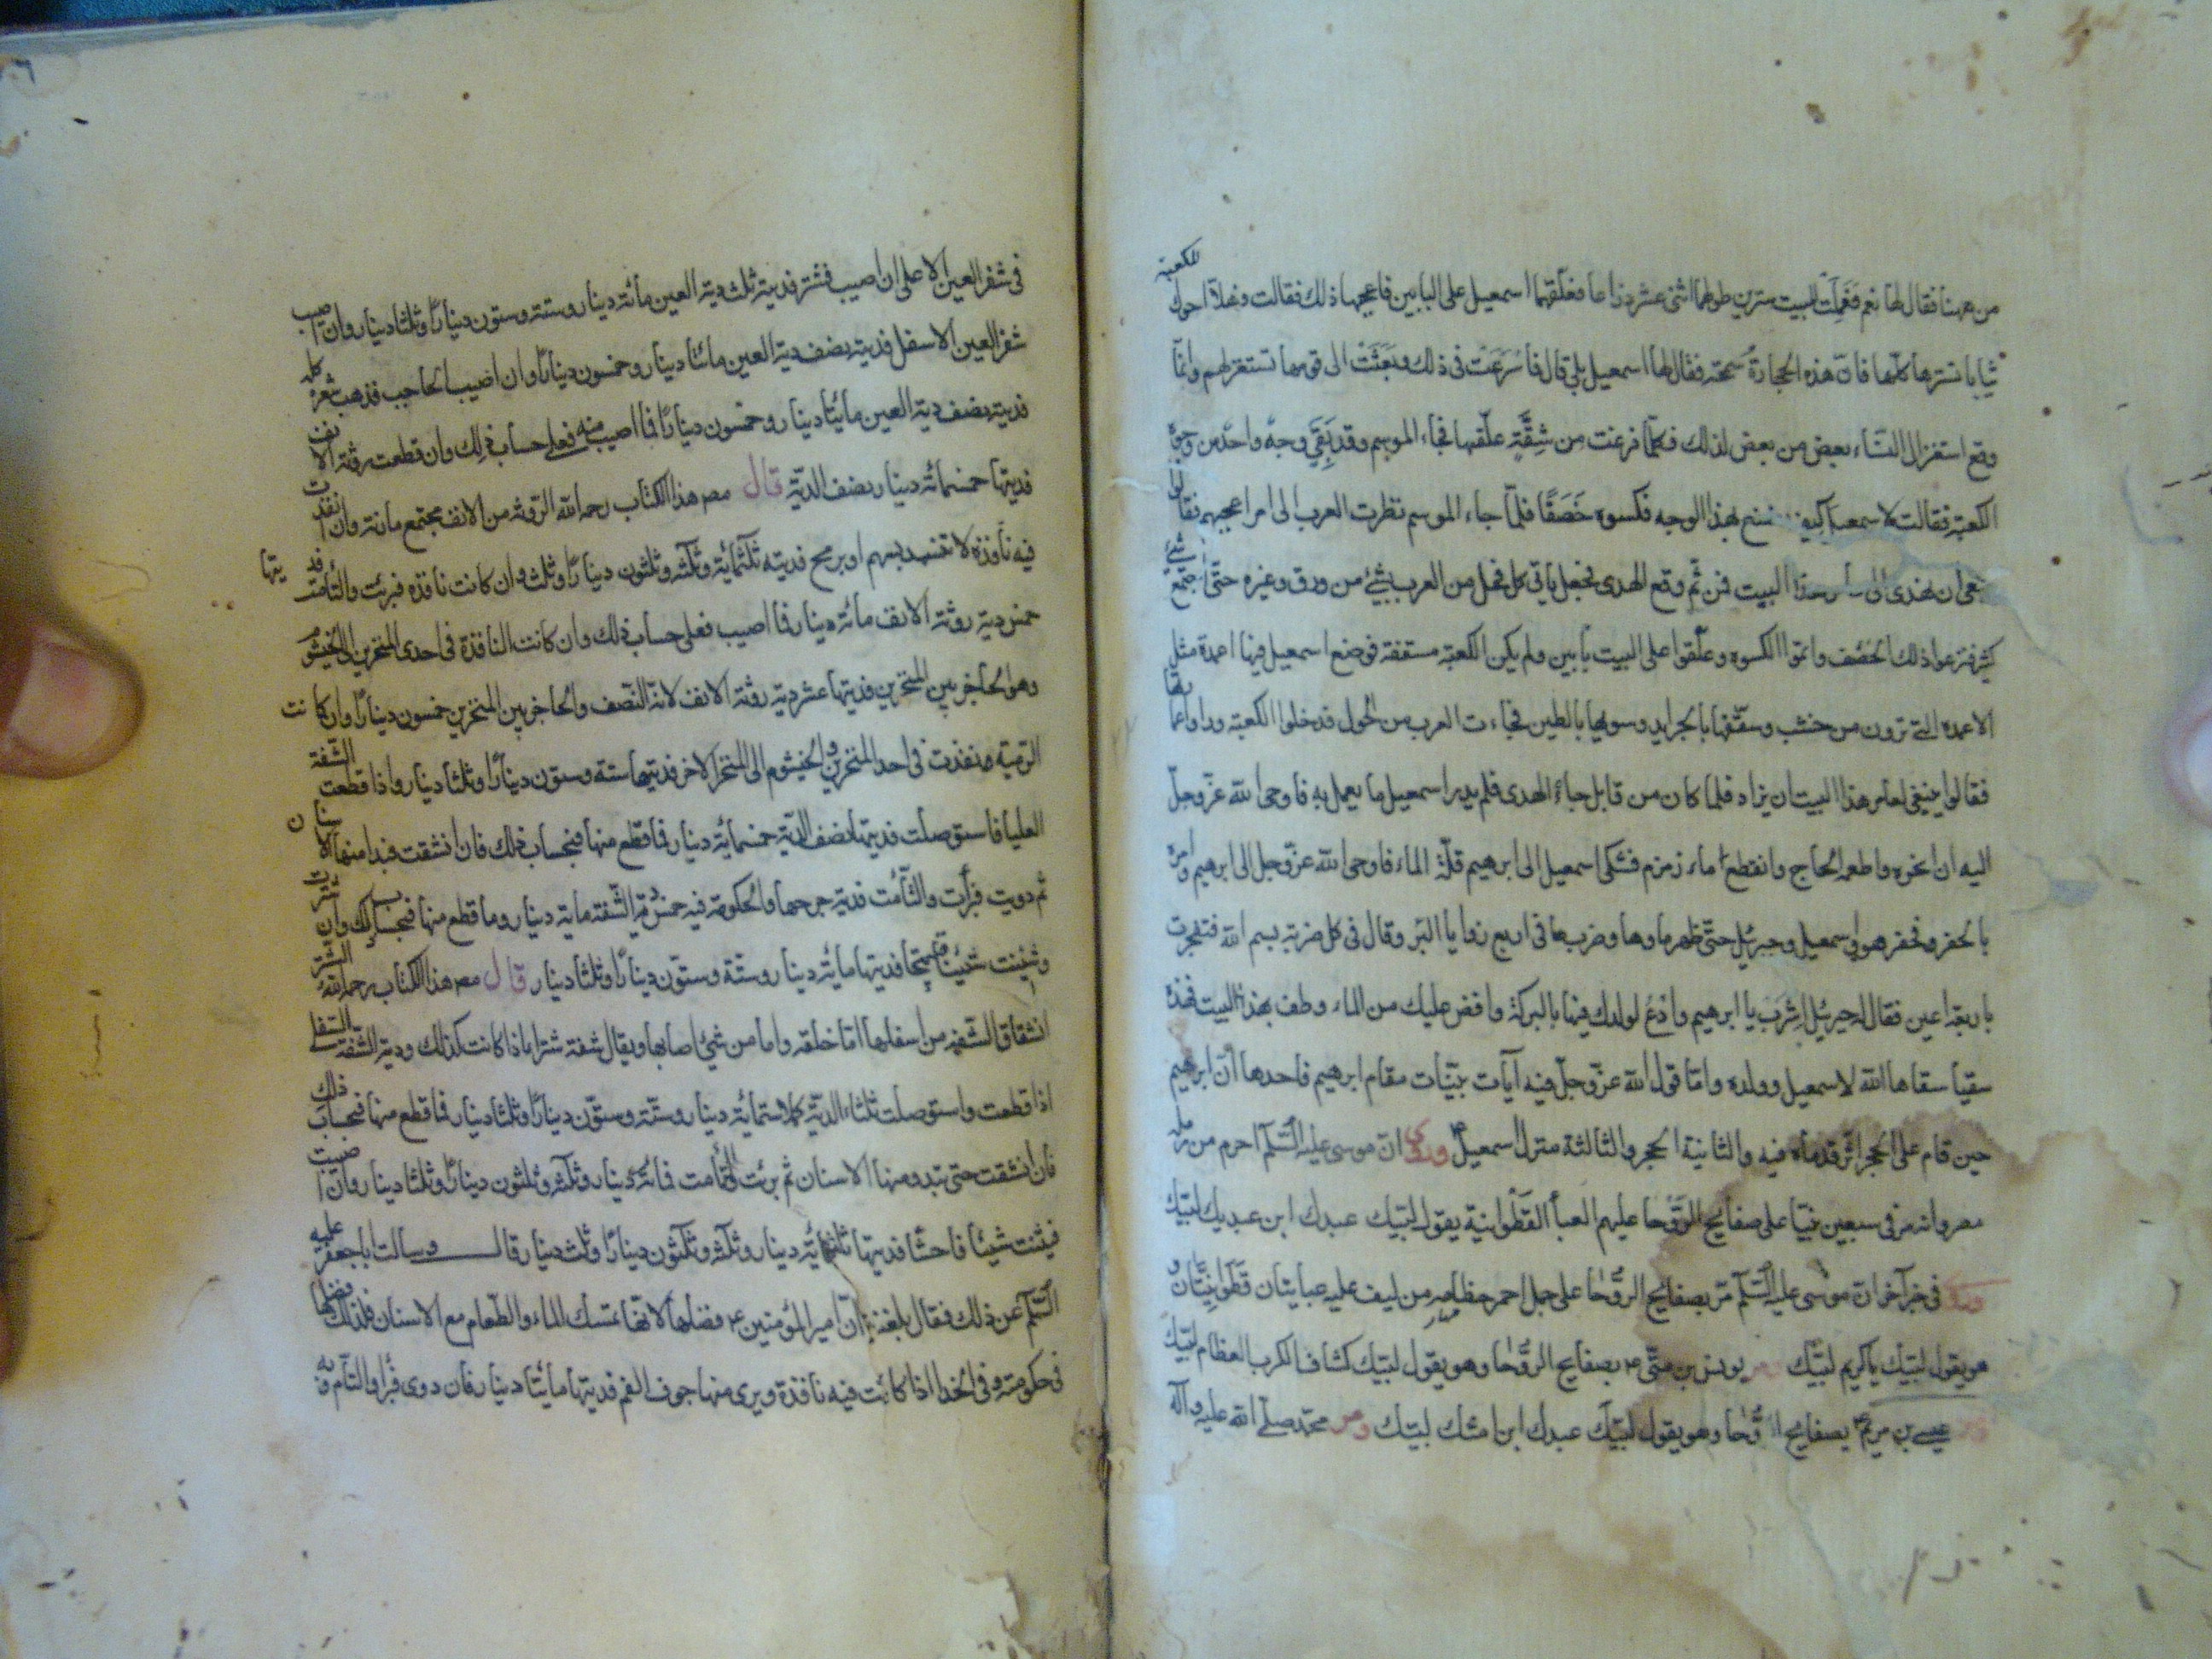 من ههنا فقال لها نعم فعملت للبيت سترين طولهما اثنى عشر ذراعا فعلقهما اسمعيل على البابين فاعجبها ذلك فقالت وفهلا احوك للكعبة
ثيابا نسترها كلها فان هذه الحجارة سمجة فقال لها اسمعيل بلى قال فاسرعت في ذلك وبعثت الى قومها تستغزلهم وانما
وقع استغزال النساء بعض من بعض لذلك فكلما فرغت من شقة علقها فجاء الموسم وقد بقي وجه واحد من وجوه
الكعبة فقالت لاسمعيل كيف نصنع بهذا الوجه فكسوه خصفا فلما جاء الموسم نظرت العرب الى امر اعجبهم فقالوا
ينبغي ان نهدى الى عامر هذا البيت فمن ثم وقع الهدى فجعل ياتي كل فخذ من العرب بشئ من ورق وغيره حتى اجتمع شئ
كثير فنزعوا ذلك الخصف واتموا الكسوه وعلقوا على البيت بابين ولم يكن الكعبة مسقفة فوضع اسمعيل فيها اعمدة مثل
الاعمدة التي ترون من خشب وسقفها بالجرايد وسويها بالطين فجاءت العرب من الحول فدخلوا الكعبة وراوا عمارتها
فقالوا ينبغي لعامر هذا البيت ان يزاد فلما كان من قابل جاءه الهدى فلم يدر اسمعيل ما يعمل به فاوحى الله عز وجل
اليه ان انحره واطعمه الحاج وانقطع ماء زمزم فشكى اسمعيل الى ابرهيم قلة الماء فاوحى الله عز وجل الى ابرهيم وامره
بالحفر فحفر هو واسمعيل وجبرئيل حتى ظهر ماوها وضرب بها في اربع زوايا البئر وقال في كل ضربة بسم الله فتفجرت
باربعة اعين فقال له جبرئيل اشرب يا ابرهيم وادع لولدك فيها بالبركة وافض عليك من الماء وطف بهذا البيت فهذه
سقيا سقاها الله لاسمعيل وولده واما قول الله عز وجل فيه آيات بينات مقام ابرهيم فاحدها ان ابرهيم
حين قام على الحجر اثر قدماه فيه والثانية الحجر والثالثة منزل اسمعيل وروى ان موسى عليه السلم احرم من رملة
مصر وانه مر في سبعين نبيا على صفايح الروحا عليهم العبا القطوانية يقول لبيك عبدك ابن عبديك لبيك
وروى في خبر آخر ان موسى عليه السلم مر بصفايح الروحا على جمل احمر خطامه من ليف عليه عبايتان قطوانيتان و
هو يقول لبيك يا كريم لبيك ومر يونس بن متى بصفايح الروحا وهو يقول لبيك كشاف الكرب العظام لبيك
ومر عيسى بن مريم بصفايح الروحا وهو يقول لبيك عبدك ابن امتك لبيك ومر محمد صلى الله عليه وآله
في شفر العين الاعلى ان اصيب فشتر فديته ثلث دية العين مائة دينار وستة وستون دينارا وثلثا دينار وان اصيب
شفر العين الاسفل فديته نصف دية العين مائتا دينار وخمسون دينارا وان اصيب الحاجب فذهب شعره كله
فديته نصف دية العين مائتا دينار وخمسون دينارا فما اصيب منه فعلى حساب ذلك وان قطعت روثة الانف
فديتها خمسمائة دينار نصف الدية قال مصنف هذا الكتاب رحمه الله الروثة من الانف مجتمع مارنه وان انفذت
فيه نافذة لا تنسد بسهم او برمح فديته ثلثمائة وثلثة وثلثون دينارا وثلث وان كانت نافذه فبرئت والتامت فديتها
خمس دية روثة الانف مائة دينار فما اصيب فعلى حساب ذلك وان كانت النافذة في احدى المنخرين الى الخيشوم
وهو الحاجز بين المنخرين فديتها عشر دية روثة الانف لانه النصف والحاجز بين المنخرين خمسون دينارا وان كانت
الرمية نفذت في احد المنخرين والخيشوم الى المنخر الاخر فديتها ستة وستون دينارا وثلثا دينار واذا قطعت الشفة
العليا فاستوصلت فديتها نصف الدية خمسمائة دينار فما قطع منها فبحساب ذلك فان انشقت فبدا منها الاسنان
ثم دويت فبرأت والتأمت فدية جرحها والحكومة فيه خمس دية الشفة ماية دينار وما قطع منها فبحساب ذلك وان شترت
وشينت شينا قبيحا فديتها مائة دينار وستة وستون دينارا وثلثا دينار قال مصنف هذا الكتاب رحمه الله الشتر
انشقاق الشفه من اسفلها اما خلقة واما من شئ اصابها ويقال شفة شترا اذا كانت كذلك ودية الشفة السفلى
اذا قطعت واستوصلت ثلثاء الدية كملا ستمائة دينار وستة وستون دينارا وثلثا دينار فما قطع منها فبحساب ذلك
فان انشقت حتى تبدو منها الاسنان ثم برئت والتأمت فمائة دينار وثلثة وثلثون دينارا وثلثا دينار وان اصيبت
فشينت شينا فاحشا فديتها ثلثمائة دينار وثلثة وثلثون دينارا وثلث دينار قال وسالت ابا جعفر عليه
السلم عن ذلك فقال بلغنا ان امير المؤمنين فضلها لانها تمسك الماء والطعام مع الاسنان فلذلك فضلها
في حكومته وفي الخد اذا كانت فيه نافذة ويرى منها جوف الفم فديتها مائتا دينار فان دوى فبرأ والتأم وبه